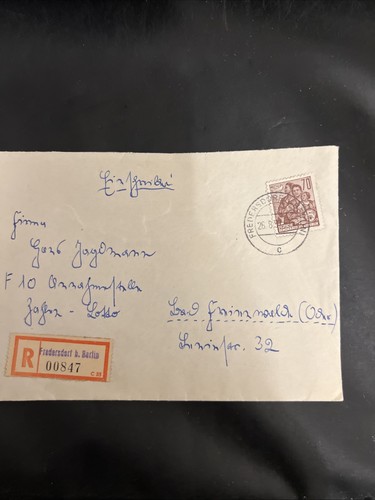 Einschreiben
70
FREDERSDORF
26.
c
Firma
Hans Jagdmann
F 10 Annahmestelle
Zahlen - Lotto
Bad Freienwalde (Oder)
Leninstr. 32
R
Fredersdorf b. Berlin
00847
C 25